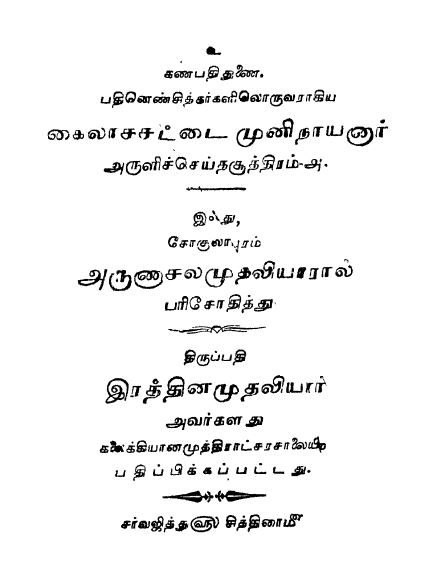 உ
கணபதிதுணை.
பதினெண்சித்தர்களிலொருவராகிய
கைலாசசட்டை முனிநாயனார்
அருளிச்செய்தசூத்திரம்-அ.
இஃது,
சோகுலாபுரம்
அருணாசலமுதலியாரால்
பரிசோதித்து
திருப்பதி
இரத்தினமுதலியார்
அவர்களது
கலைக்கியானமுத்திராட்சரசாலையிற்
பதிப்பிக்கப்பட்டது.
சர்வஜித்து௵ சித்திரைமீ